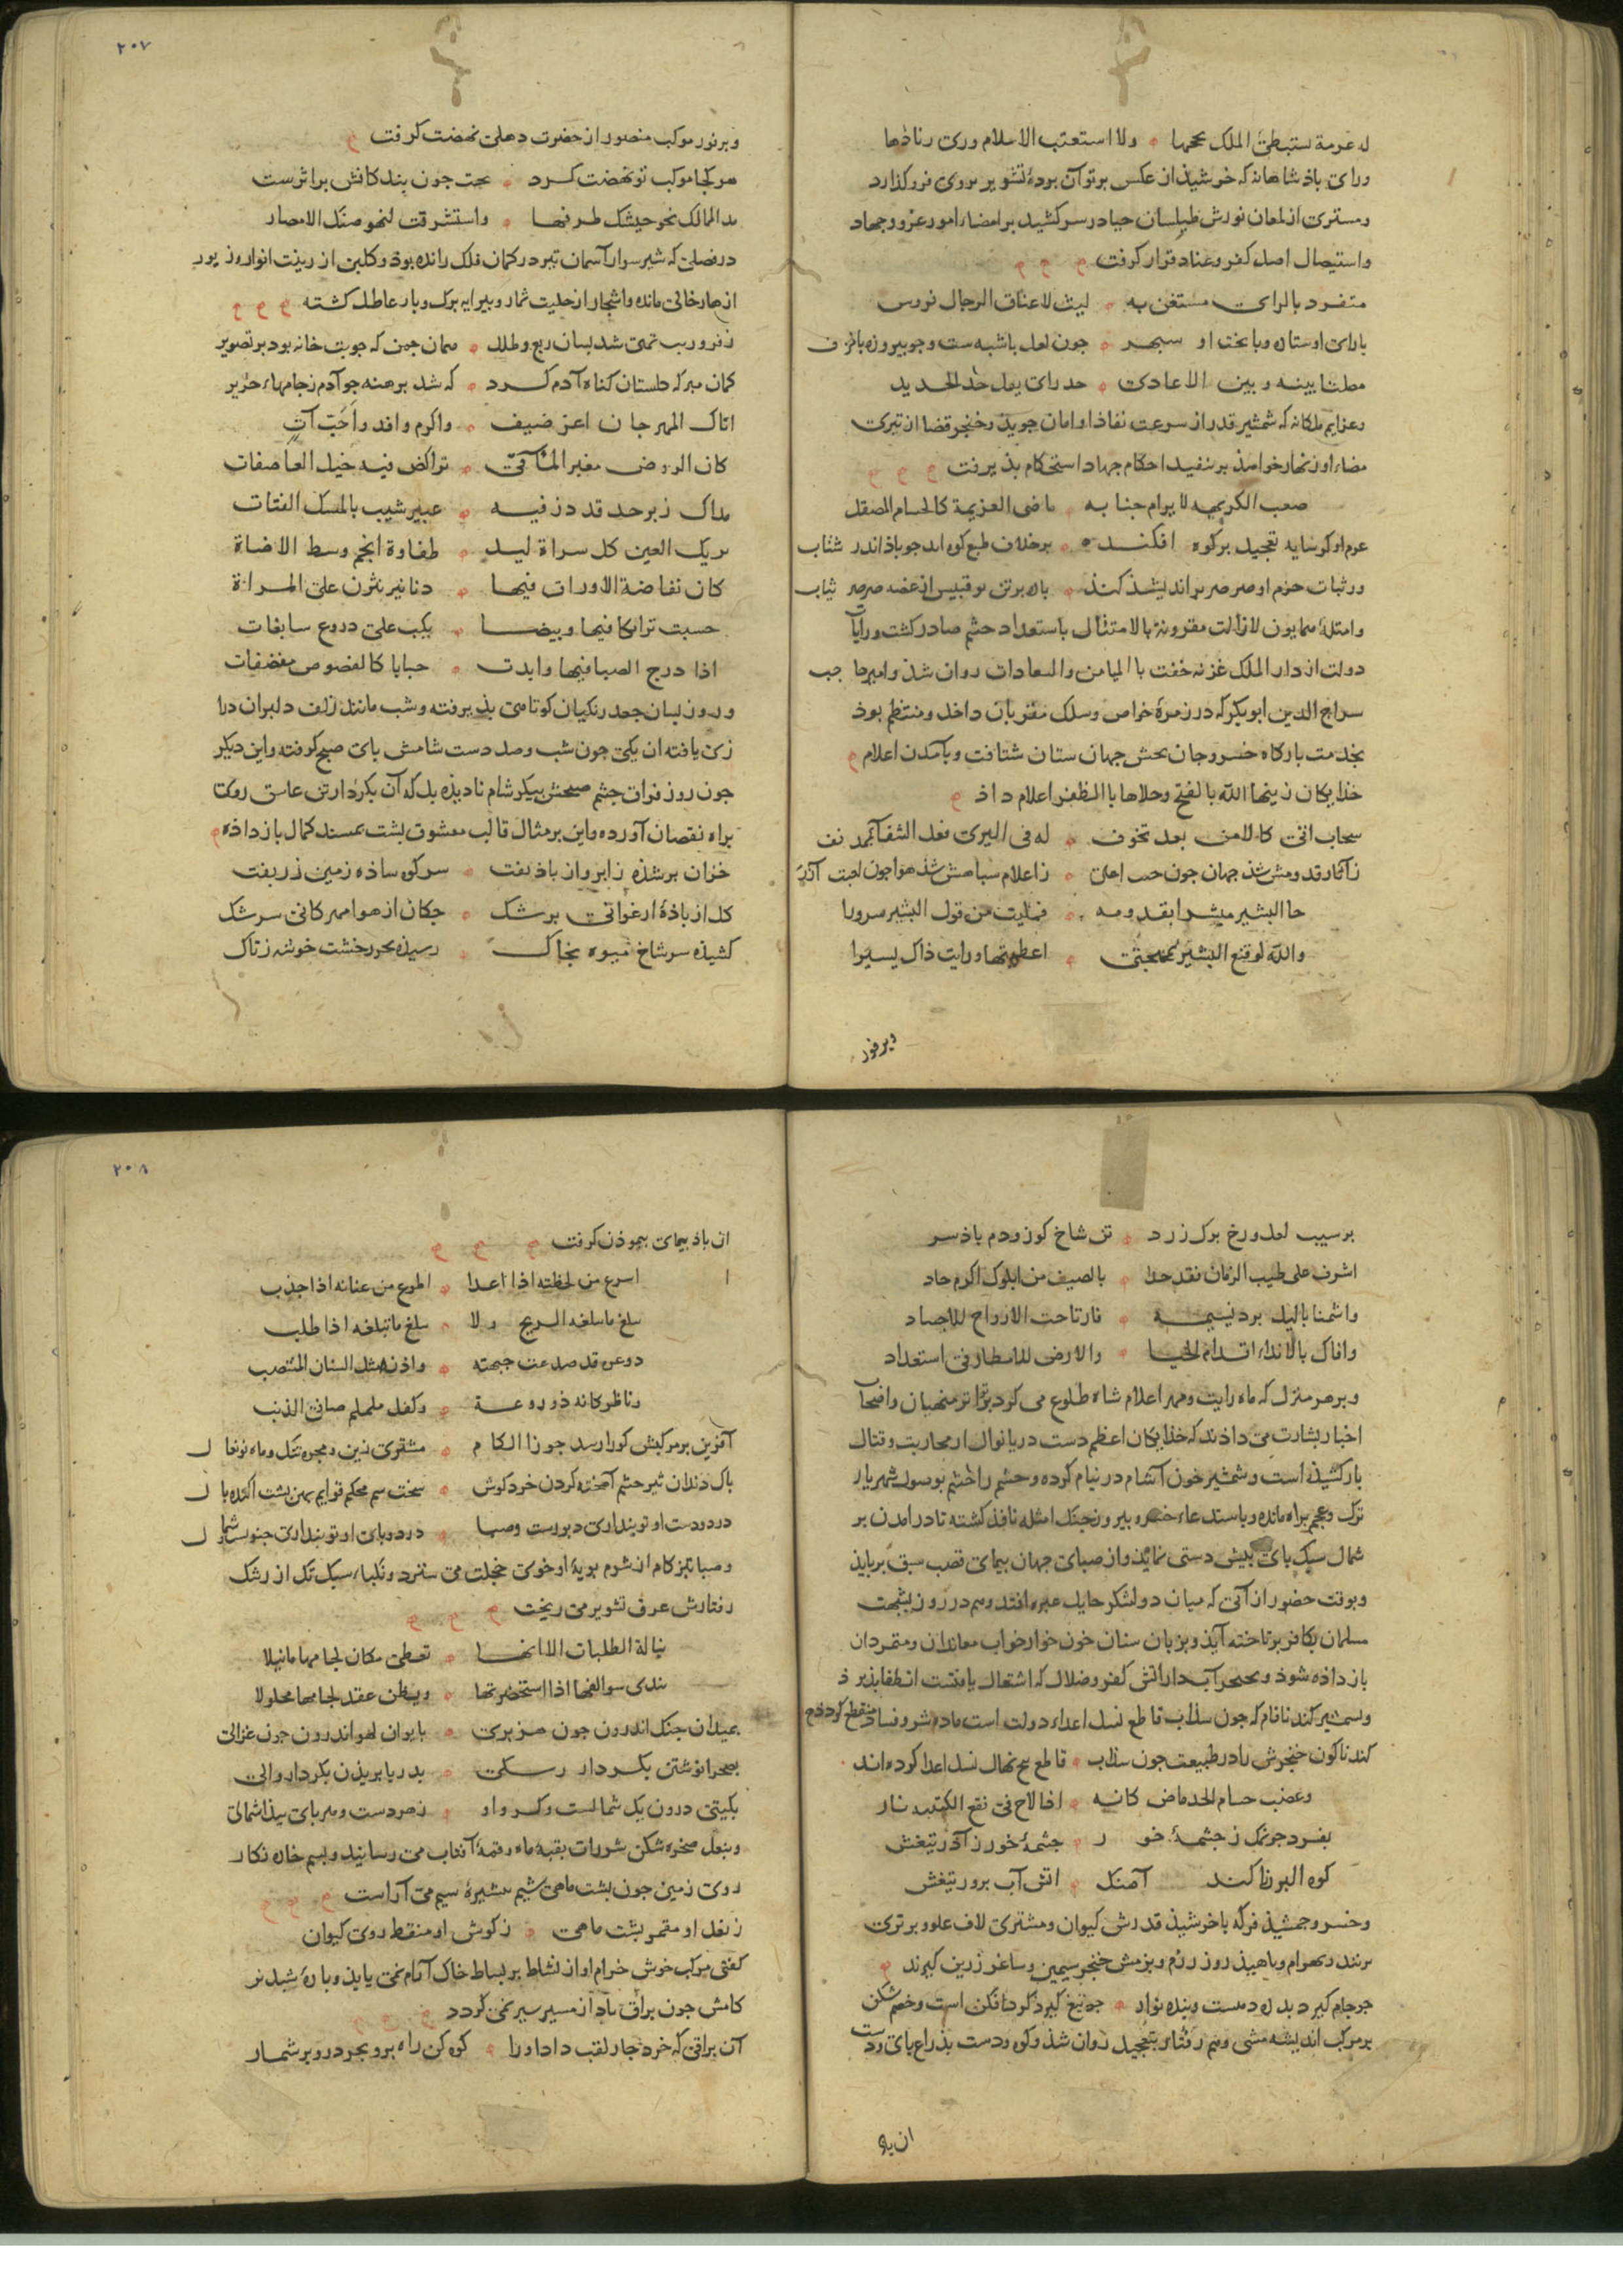 له عزمة تستبطئ الملک ولا استعتب الاسلام وری زنادها
ورای باذشاهانه که خرشیذ از عکس پرتو آن پردهٔ تشویر بروی فرو گذارد
ومشتری از لمعان نورش طیلسان حیا در سر کشید بر امضاء امور غزو وجهاد
واستیصال اصل کفر وعناد قرار کرفت
متفرد بالرای مستغن به لیث لاعناق الرجال فروس
با رای او ستاره وبا بخت او سپهر چون لعل با شبه ست وچو بیروزه با خزف
بینه وبین الاعادی حد رای یفل حد الحدید
وعزایم ملکانه که شمشیر قدر از سرعت نفاذ او امان جوید وخنجر قضا از تیزی
مضاء او زنهار خواهذ بر تنفید احکام جهاد استحکام بذیرفت
صعب الکریهه لا یرام جنابه ماضی العزیمة کالحسام المصقل
عزم او کر سایه تعجیل بر کوه افکند بر خلاف طبع کوه اید جو باذ اندر شتاب
ورثبات حزم او صرصر براندیشد کند
وامثلهٔ همایون لازالت مقرونة بالامتثال باستعداد حشم صادر کشت ورایات
دولت از دار الملک غزنه خفت باالمیامن والسعادات روان شذ وامیر حاجب
سراج الدین ابوبکر که در زمرهٔ خواص وسلک مقربان داخل ومنتظم بوذ
بخدمت بارکاه خسرو جان بخش جهان ستان شتافت وبآمدن اعلام
خدایکان زینها الله بالفتح وحلاها باالظفر اعلام داذ
سحاب اتی کالامن بعد تخوف له فی الثری فعل الشفا بمدنف
ز آثار قدومش شذ جهان چون ز اعلام سباهش شذ هوا چون لعبت آذر
جا البشیر مبشرا بقدومه فملیت من قول البشیر سرورا
والله لو قنع البشیر بمهجتی اعطیتها ورایت ذاک یسیرا
وبرفور
٢٠٧
وبرفور موکب منصور از حضرت دهلی نهضت کرفت
هر کجا موکب تو نهضت کرد بخت چون بندکانش بر اثرست
الممالک نحو جیشک طرفها واستشرقت لنحو صنک الامصار
در فصلی که شیر سوار آسمان تیر در کمان فلک رانده بوذ وکلبن از زینت انوار وزیور
ازهار خالی مانده واشجار از حلیت ثمار وبیرایه برک وبار عاطل کشته
ز فر وزیب تهی شد بسان ربع وطلل همان چمن که چو بتخانه بود بر تصویر
کمان مبر که کلستان کناه آدم کرد که شد برهنه جو آدم ز جامهاء حریر
اتاک المهرجان اعز ضیف واکرم وافد واحب آت
کان الروض مغبر تراکض فیه خیل العاصفات
مداک زبرجد قد دز فیه عبیر شیب بالمسک الفتات
العین کل سراة لیل طفاوة انجم وسط الاضاة
کان نفاضة الاوراق فیها دنانیر نثرن علی المراة
حسبت ترایکا فیها وبیضا یکب علی دروع سابغات
اذا درج الصبا فیها وابدت حبابا کالفصوص مفضضات
وروز بسان جعد زنکیان کوتاهی بذیرفته وشب مانند زلف دلبران درا
زی یافته ان یکی جون شب وصل دست شامش بای صبح کرفته واین دیکر
جون روز فراق چشم صبحش بیکر شام نادیذه بل که آن بکردار تن عاشق روی
براه نقصان آورده واین بر مثال قالب معشوق بشت بمسند کمال باز داذه
خزان بر شذه ز ابر واز باذ تفت سر کوه ساذه زمین زر بفت
کل از باذهٔ ارغوانی برشک چکان از هوا مهرکانی سرشک
کشیذه سر شاخ میوه بخاک رسیذه بجو چرخشت خوشه ز تاک
بر سیب لعل ورخ برک زرد تن شاخ کوز ودم باذ سرد
اشرف علی طیب الزمان فقد حدا بالصیف من ایلول اکرم حاد
واشمنا باللیل برد نسیمه فارتاحت الارواح للاجساد
وافاک بالانداء اقدام الحیا والارض للامطار فی استعداد
وبر هر منزل که ماه رایت ومهر اعلام شاه طلوع می کرد بتواتر منهیان واضحا
اخبار بشارت می داذند که خذایکان اعظم دست دریانوال از محاربت وقتال
باز کشیذه است وشمشیر خون آشام در نیام کرده وحشم را چشم بوصول شهریار
ترک وعجم براه مانده وباستدعاء خسرو بیروزجنک امثله نافذ کشته تا در امدن بر
شمال سبک بای بیش دستی نمایذ واز صبای جهان بیمای قصب سبق برباید
وبوقت حضور از آنی که میان دو لشکر حایل عبره افتد وهم در روز بشجت
مسلمان بکافر بر تاخته آید وبزبان سنان خون خوار خواب معاندان ومتمردان
باز داذه شوذ وبخنجر آب دار اتش کفر وضلال که اشتعال یافتست انطفا بذیرد
وبشمشیر کند نافام که جون سنداب قاطع نسل اعداء دولت است ماده شر وفساد منقطع کردد
کند ناکون خنجرش را در طبیعت جون سداب قاطع بیخ نهال نسل اعدا کرده اند
وعضب حسام الحد ماض کانه اذا لاح فی نقع الکتیبه نار
بفسرد جو نمک ز چشمهٔ خور چشمهٔ خور ز آذر تیغش
کوه البرز تا کند آهنک اتش آب برور تیغش
وخسرو جمشیذ فر که با خرشیذ قدرش کیوان ومشتری لاف علو وبرتری
نزنند وبهرام وناهیذ روز رزم وبزمش خنجر سیمین وساغر زرین کیرند
جو جام کیرد بدره دهست وبنده نواز جو تیغ کیرد کردافکن است وخصم شکن
بر مرکب اندیشه مشی وهم رفتار بتعجیل روان شذ وکوه ودست بذراع بای ودست
ان باذ
٢٠٨
ان باذ بیمای بیموذن کرفت
اسرع من لحظته اذا اعدا اطوع من عنانه اذا جذب
یبلغ ما یبلغه الریح ولا یبلغ ما تبلغه اذا طلب
ذو غرة قد صدعت جبهته واذن مثل السنان المنتصب
وناظر کانه ذو روعة وکفل ململم صافی الذنب
آفرین بر مرکبش کورا رسد جوزا لکام مشتری زین ومجره تنک وماه نو نعال
باک دندان تیز چشم آهخته کردن خرد کوش سخت سم محکم قوایم بهن بشت اکنده یال
در دو دست او تو بنداری دبورست وصبا در دو بای او تو بنداری جنوبست وشمال
وصباء تیز کام از شرم بویهٔ او خوی خجلت می سترد ونکباء سبک تک از رشک
رفتارش عرق تشویر می ریخت
نیالة الطلبات الا انها تعطی مکان لجامها ما نیلا
تندی سوالفها اذا استحضرتها ویظن عقد لجامها محلولا
بمیدان جنک اندرون جون هزبری بایوان لهو اندرون جون غزالی
بصحرا نوشتن بکردار بدریا بریذن بکردار والی
بکیتی درون یک شمالست وکر او زهر دست وهر بای بیذا شمالی
وبنعل صخره شکن شررات بقبهٔ ماه وقمهٔ آفتاب می رسانید وبسم خاره نکار
روی زمین جون بشت ماهی شیم بشیزهٔ سیم می آراست
ز نعل او مقمر بشت ماهی ز کوش او منقط روی کیوان
کفتی مرکب خوش خرام او از نشاط بر بساط خاک آرام نمی یابد وبارهٔ شبدیز
کامش جون براق باذ از مسیر سیر نمی کردد
آن براقی که خرد جار لقب داد اورا کوه کن راه بر وبحر در وبر شمار